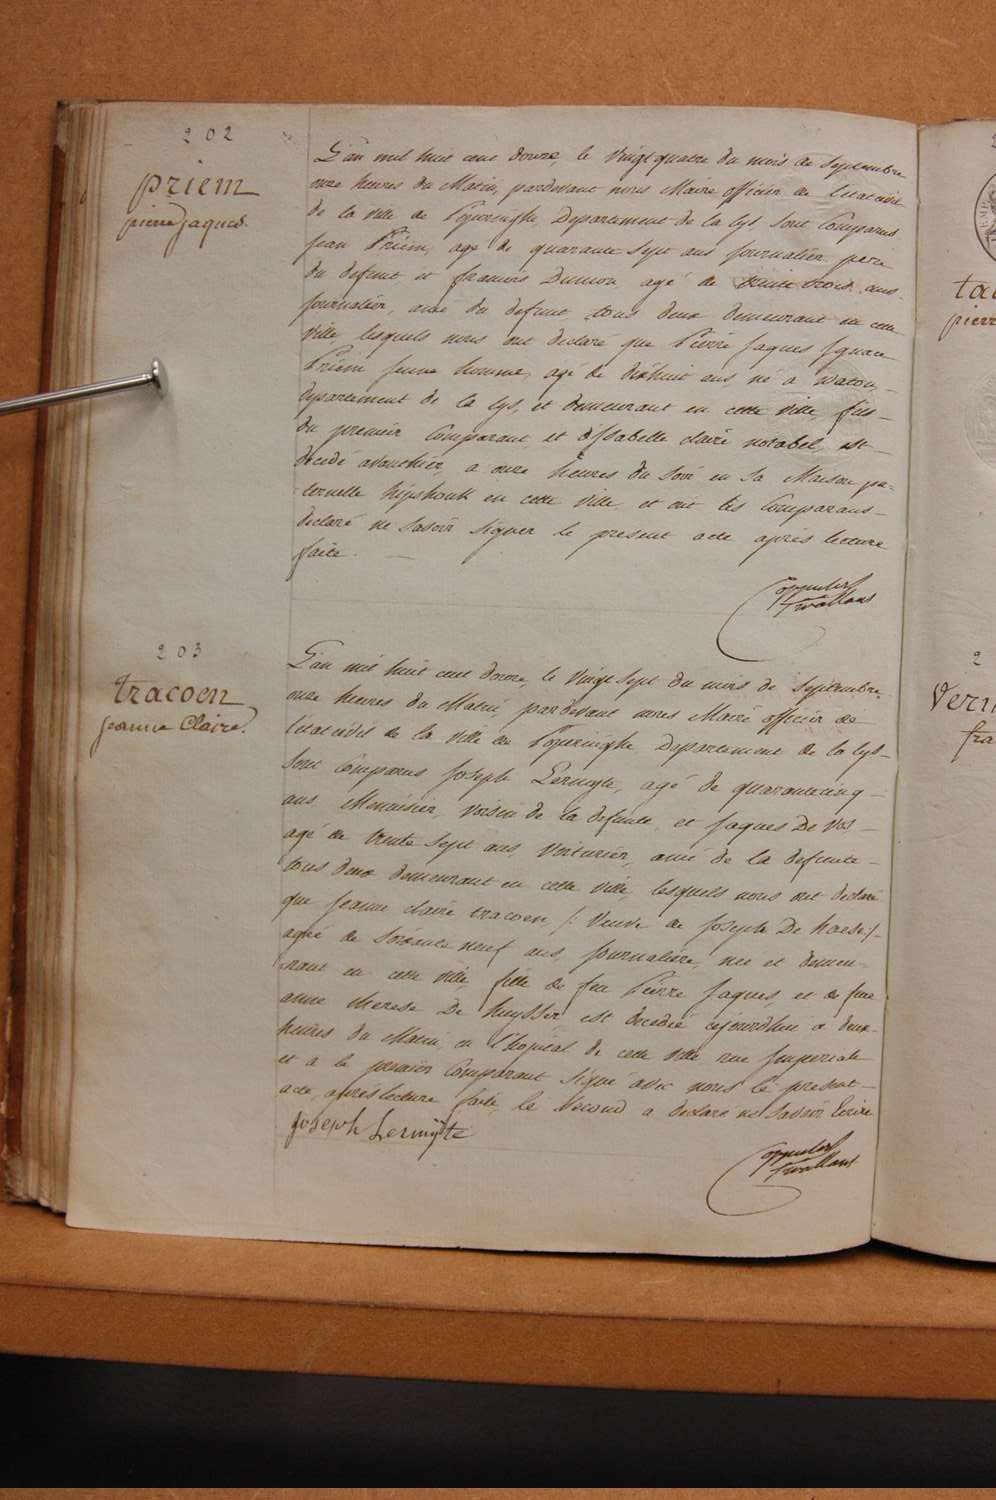 202
priem
pierre jaques.
L'an mil huit cent douze, le vingt quatre du mois de Septembre
onze heures du Matin, pardevant nous Maire officier de l'etat civil
de la ville de Poperinghe, Departement de la Lys, sont Comparus
jean Priem, agé de quarante sept ans journalier, pere
du defunt, et francois Dumon, agé de trente trois ans-
journalier, ami du defunt tous deux demeurant en cette
ville lesquels nous ont declaré que Pierre Jaques Ignace
Priem jeune homme, agé de dixhuit ans, né a watou,-
departement de la Lys, et demeurant en cette ville, fils-
du premier Comparant et d'Isabelle claire notabel, est-
decedé avanthier, a onze heures du soir en sa Maison pa=
ternelle hipshouk en cette ville, et ont les Comparans-
declaré ne savoir signer le present acte après lecture
faite. -
203
tracoen
jeanne Claire.
L'an mil huit cent douze, le vingt sept du mois de Septembre,
onze heures du Matin, pardevant nous Maire officier de
l'etat civil de la ville de Poperinghe, Departement de la Lys-
sont Comparus Joseph Lermyte, agé de quarantecinq-
ans, Menuisier, voisin de la defunte, et Jaques De Vos-
agé de trente sept ans, voiturier, ami de la defunte-
tous deux demeurant en cette ville, lesquels nous ont declaré
que jeanne claire tracoen, /: Veuve de Joseph De haese:/-
agée de soixante neuf ans, journalière, née et demeu-
rant en cette ville, fille de feu Pierre Jaques, et de feue
anne therese De Kuysser est decedée cejourdhui a deux-
heures du Matin, en l'hopital de cette ville rue Imperiale
et a le premier Comparant signé avec nous le present-
acte, après lecture faite, le Second a declaré ne savoir Ecrire
Joseph Lermijte
tac
pierr
2
Vern
fra